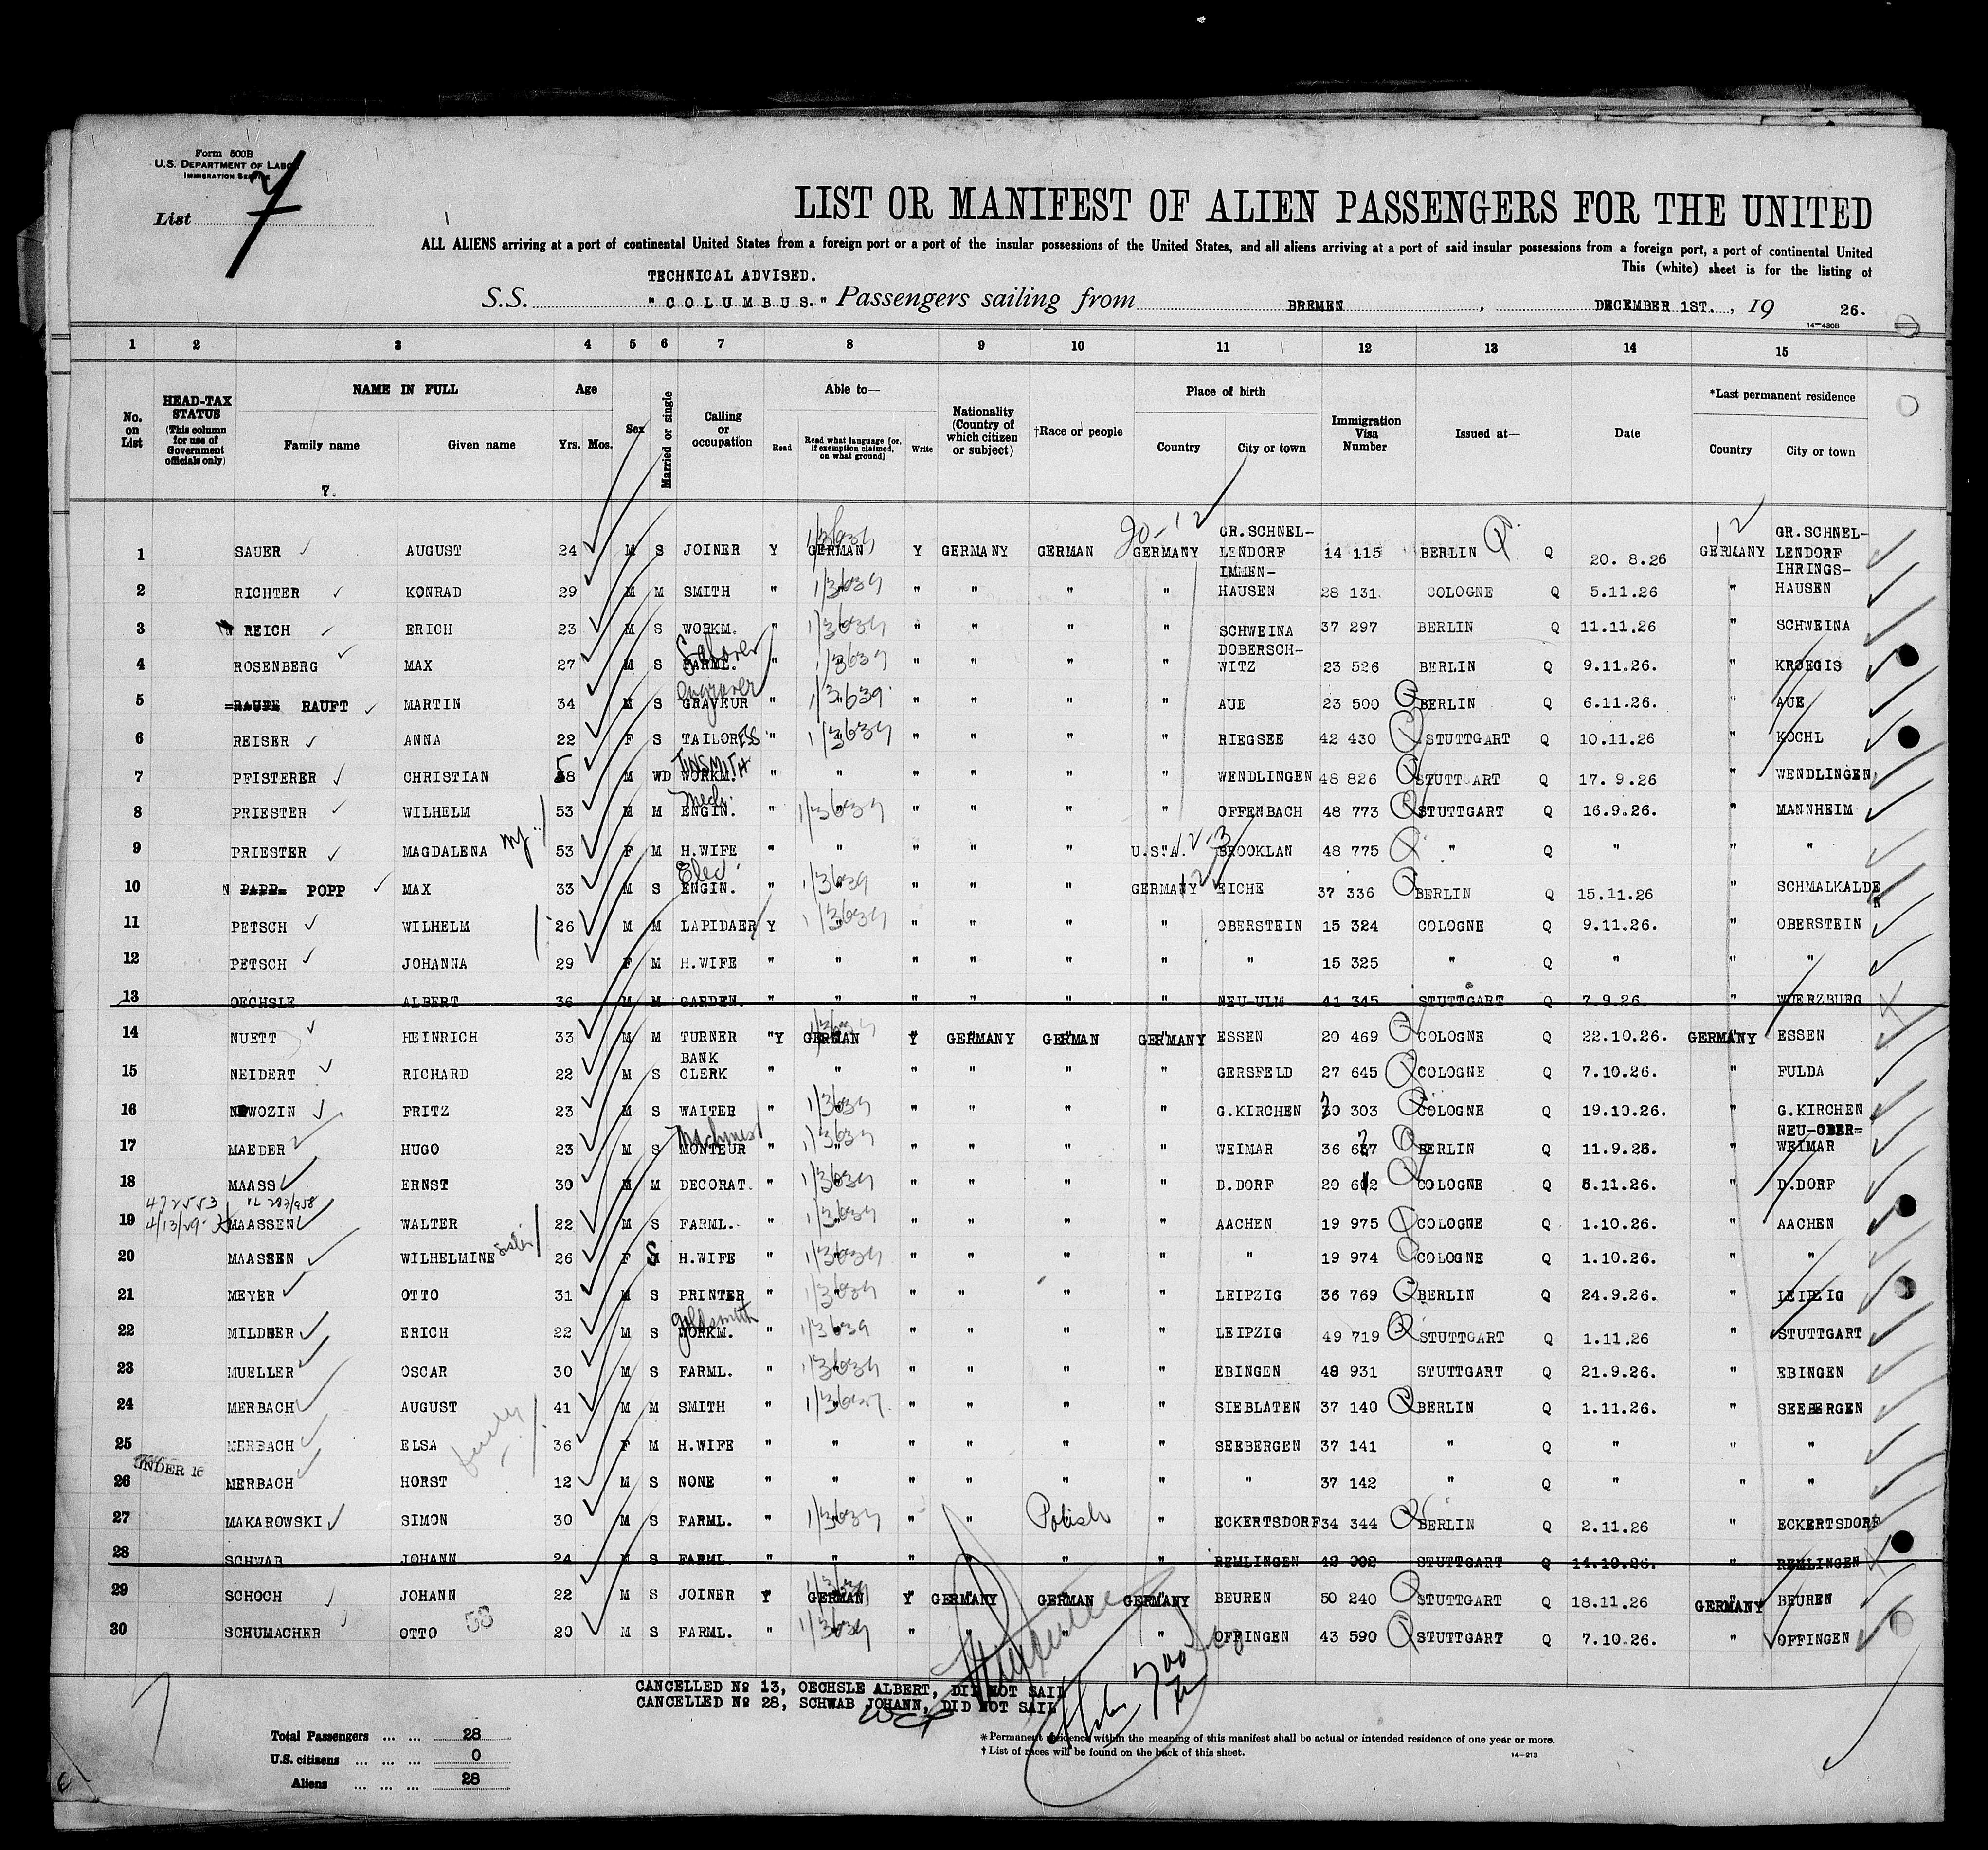 Form 500B
U.S. DEPARTMENT OF LABOR
IMMIGRATION SERVICE
List 7
LIST OR MANIFEST OF ALIEN PASSENGERS FOR THE UNITED
ALL ALIENS arriving at a port of continental United States from a foreign port or a port of the insular possessions of the United States, and all aliens arriving at a port of said insular possessions from a foreign port, a port of continental United
This (white) sheet is for the listing of
TECHNICAL ADVISED.
S.S. "COLUMBUS." Passengers sailing from BREMEN, DECEMBER 1ST., 19 26.
14-430B
1 2 3 4 5 6 7 8 9 10 11 12 13 14 15
No. on List
HEAD-TAX STATUS (This column for use of Government officials only)
NAME IN FULL
Family name Given name
Age
Yrs. Mos.
Sex
Married or single
Calling or occupation
Able to—
Read Read what language (or, if exemption claimed, on what ground) Write
Nationality (Country of which citizen or subject)
†Race or people
Place of birth
Country City or town
Immigration Visa Number
Issued at—
Date
*Last permanent residence
Country City or town
7.
20-12 12
1 SAUER AUGUST 24 M S JOINER Y GERMAN Y GERMANY GERMAN GERMANY GR.SCHNEL-LENDORF 14 115 BERLIN Q 20. 8.26 GERMANY GR.SCHNEL-LENDORF
2 RICHTER KONRAD 29 M M SMITH " " " " " " IMMEN-HAUSEN 28 131 COLOGNE Q 5.11.26 " IHRINGS-HAUSEN
3 REICH ERICH 23 M S WORKM. " " " " " " SCHWEINA 37 297 BERLIN Q 11.11.26 " SCHWEINA
4 ROSENBERG MAX 27 M S FARML. Laborer " " " " " " DOBERSCH-WITZ 23 526 BERLIN Q 9.11.26. " KROEGIS
5 RAUFT MARTIN 34 M S GRAVEUR engraver " " " " " " AUE 23 500 BERLIN Q 6.11.26. " AUE
6 REISER ANNA 22 F S TAILORESS " " " " " " RIEGSEE 42 430 STUTTGART Q 10.11.26 " KOCHL
7 PFISTERER CHRISTIAN 58 M WD WORKM. TINSMITH " " " " " " WENDLINGEN 48 826 STUTTGART Q 17. 9.26 " WENDLINGEN
8 PRIESTER WILHELM 53 M M ENGIN. Mech. " " " " " " OFFENBACH 48 773 STUTTGART Q 16.9.26 " MANNHEIM
9 PRIESTER MAGDALENA 53 F M H.WIFE " " " " " U.S.A. BROOKLAN 48 775 " Q " " "
10 POPP MAX 33 M S ENGIN. Elec. " " " " " GERMANY EICHE 37 336 BERLIN Q 15.11.26 " SCHMALKALDEN
11 PETSCH WILHELM 26 M M LAPIDAER Y " " " " " OBERSTEIN 15 324 COLOGNE Q 9.11.26. " OBERSTEIN
12 PETSCH JOHANNA 29 F M H.WIFE " " " " " " " 15 325 " Q " " "
13 OECHSLE ALBERT 36 M M GARDEN. " " " " " " NEU-ULM 41 345 STUTTGART Q 7.9.26. " WUERZBURG
14 NUETT HEINRICH 33 M M TURNER "Y GERMAN Y GERMANY GERMAN GERMANY ESSEN 20 469 COLOGNE Q 22.10.26. GERMANY ESSEN
15 NEIDERT RICHARD 22 M S BANK CLERK " " " " " " GERSFELD 27 645 COLOGNE Q 7.10.26. " FULDA
16 NOWOZIN FRITZ 23 M S WAITER " " " " " " G.KIRCHEN 303 COLOGNE Q 19.10.26. " G.KIRCHEN
17 MAEDER HUGO 23 M S MONTEUR Machinist " " " " " " WEIMAR 36 BERLIN Q 11.9.26. " NEU-OBER=WEIMAR
18 MAASS ERNST 30 M M DECORAT. " " " " " " D.DORF 20 COLOGNE Q 5.11.26. " D.DORF
472553
4/13/29
19 MAASSEN WALTER 22 M S FARML. " " " " " " AACHEN 19 975 COLOGNE Q 1.10.26. " AACHEN
20 MAASSEN WILHELMINE sister 26 F S H.WIFE " " " " " " " 19 974 COLOGNE Q 1.10.26. " "
21 MEYER OTTO 31 M S PRINTER " " " " " " LEIPZIG 36 769 BERLIN Q 24.9.26. " LEIPZIG
22 MILDNER ERICH 22 M S WORKM. goldsmith " " " " " " LEIPZIG 49 719 STUTTGART Q 1.11.26 " STUTTGART
23 MUELLER OSCAR 30 M S FARML. " " " " " " EBINGEN 48 931 STUTTGART Q 21.9.26. " EBINGEN
24 MERBACH AUGUST 41 M M SMITH " " " " " " SIEBLATEN 37 140 BERLIN Q 1.11.26. " SEEBERGEN
25 MERBACH ELSA family 36 F M H.WIFE " " " " " " SEEBERGEN 37 141 " Q " " "
UNDER 16
26 MERBACH HORST 12 M S NONE " " " " " " " 37 142 " Q " " "
27 MAKAROWSKI SIMON 30 M S FARML. " " " " Polish " ECKERTSDORF 34 344 BERLIN Q 2.11.26 " ECKERTSDORF
28 SCHWAB JOHANN 24 M S FARML " " " " " " REMLINGEN STUTTGART Q 14.10.26. " REMLINGEN
29 SCHOCH JOHANN 22 M S JOINER Y GERMAN Y GERMANY GERMAN GERMANY BEUREN 50 240 STUTTGART Q 18.11.26 GERMANY BEUREN
30 SCHUMACHER OTTO 20 M S FARML. " " " " " " OFFINGEN 43 590 STUTTGART Q 7.10.26. " OFFINGEN
CANCELLED No 13, OECHSLE ALBERT, DID NOT SAIL
CANCELLED No 28, SCHWAB JOHANN, DID NOT SAIL
Total Passengers ... ... 28
U.S. citizens ... ... ... 0
Aliens ... ... ... 28
*Permanent residence within the meaning of this manifest shall be actual or intended residence of one year or more.
†List of races will be found on the back of this sheet.
14-213